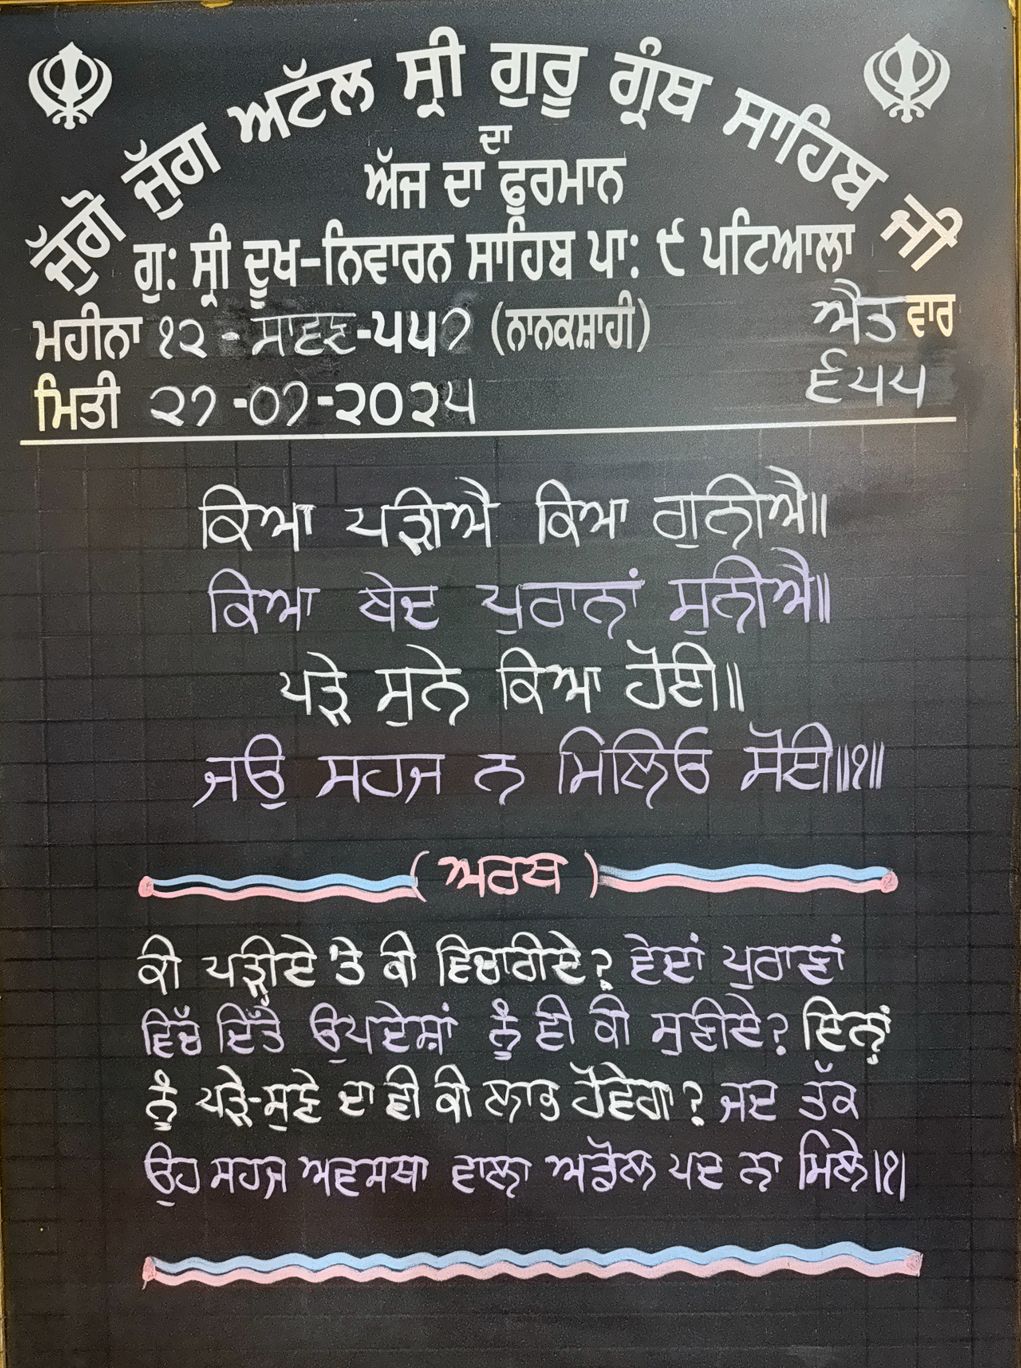 ਜੁੱਗੋ ਜੁੱਗ ਅਟੱਲ ਸ੍ਰੀ ਗੁਰੂ ਗ੍ਰੰਥ ਸਾਹਿਬ ਜੀ
ਦਾ
ਅੱਜ ਦਾ ਫੂਰਮਾਨ
ਗੁ: ਸ੍ਰੀ ਦੂਖ-ਨਿਵਾਰਨ ਸਾਹਿਬ ਪਾ: ੯ ਪਟਿਆਲਾ
ਮਹੀਨਾ ੧੨ - ਸਾਵਣ-੫੫੭ (ਨਾਨਕਸ਼ਾਹੀ) ਐਤਵਾਰ
ਮਿਤੀ ੨੭-੦੭-੨੦੨੫ ੬੫੫
ਕਿਆ ਪੜੀਐ ਕਿਆ ਗੁਨੀਐ॥
ਕਿਆ ਬੇਦ ਪੁਰਾਨਾਂ ਸੁਨੀਐ॥
ਪੜੇ ਸੁਨੇ ਕਿਆ ਹੋਈ॥
ਜਉ ਸਹਜ ਨ ਮਿਲਿਓ ਸੋਈ॥੧॥
(ਅਰਥ)
ਕੀ ਪੜ੍ਹੀਏ 'ਤੇ ਕੀ ਵਿਚਾਰੀਏ? ਵੇਦਾਂ ਪੁਰਾਣਾਂ
ਵਿੱਚ ਦਿੱਤੇ ਉਪਦੇਸ਼ਾਂ ਨੂੰ ਵੀ ਕੀ ਸੁਣੀਏ? ਇਨ੍ਹਾਂ
ਨੂੰ ਪੜੇ-ਸੁਣੇ ਦਾ ਵੀ ਕੀ ਲਾਭ ਹੋਵੇਗਾ? ਜਦ ਤੱਕ
ਉਹ ਸਹਜ ਅਵਸਥਾ ਵਾਲਾ ਅਡੋਲ ਪਦ ਨਾ ਮਿਲੇ।੧।